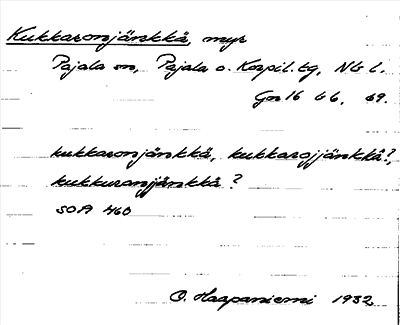 Kukkaronjänkkä, myr
Pajala sn, Pajala o. Korpil. tg, Nb l.
Gn 16 b 6, 69.
kukkaronjänkkä, kukkarojjänkkä?,
kukkuranjänkkä?
SOA 460
O. Haapaniemi 1932